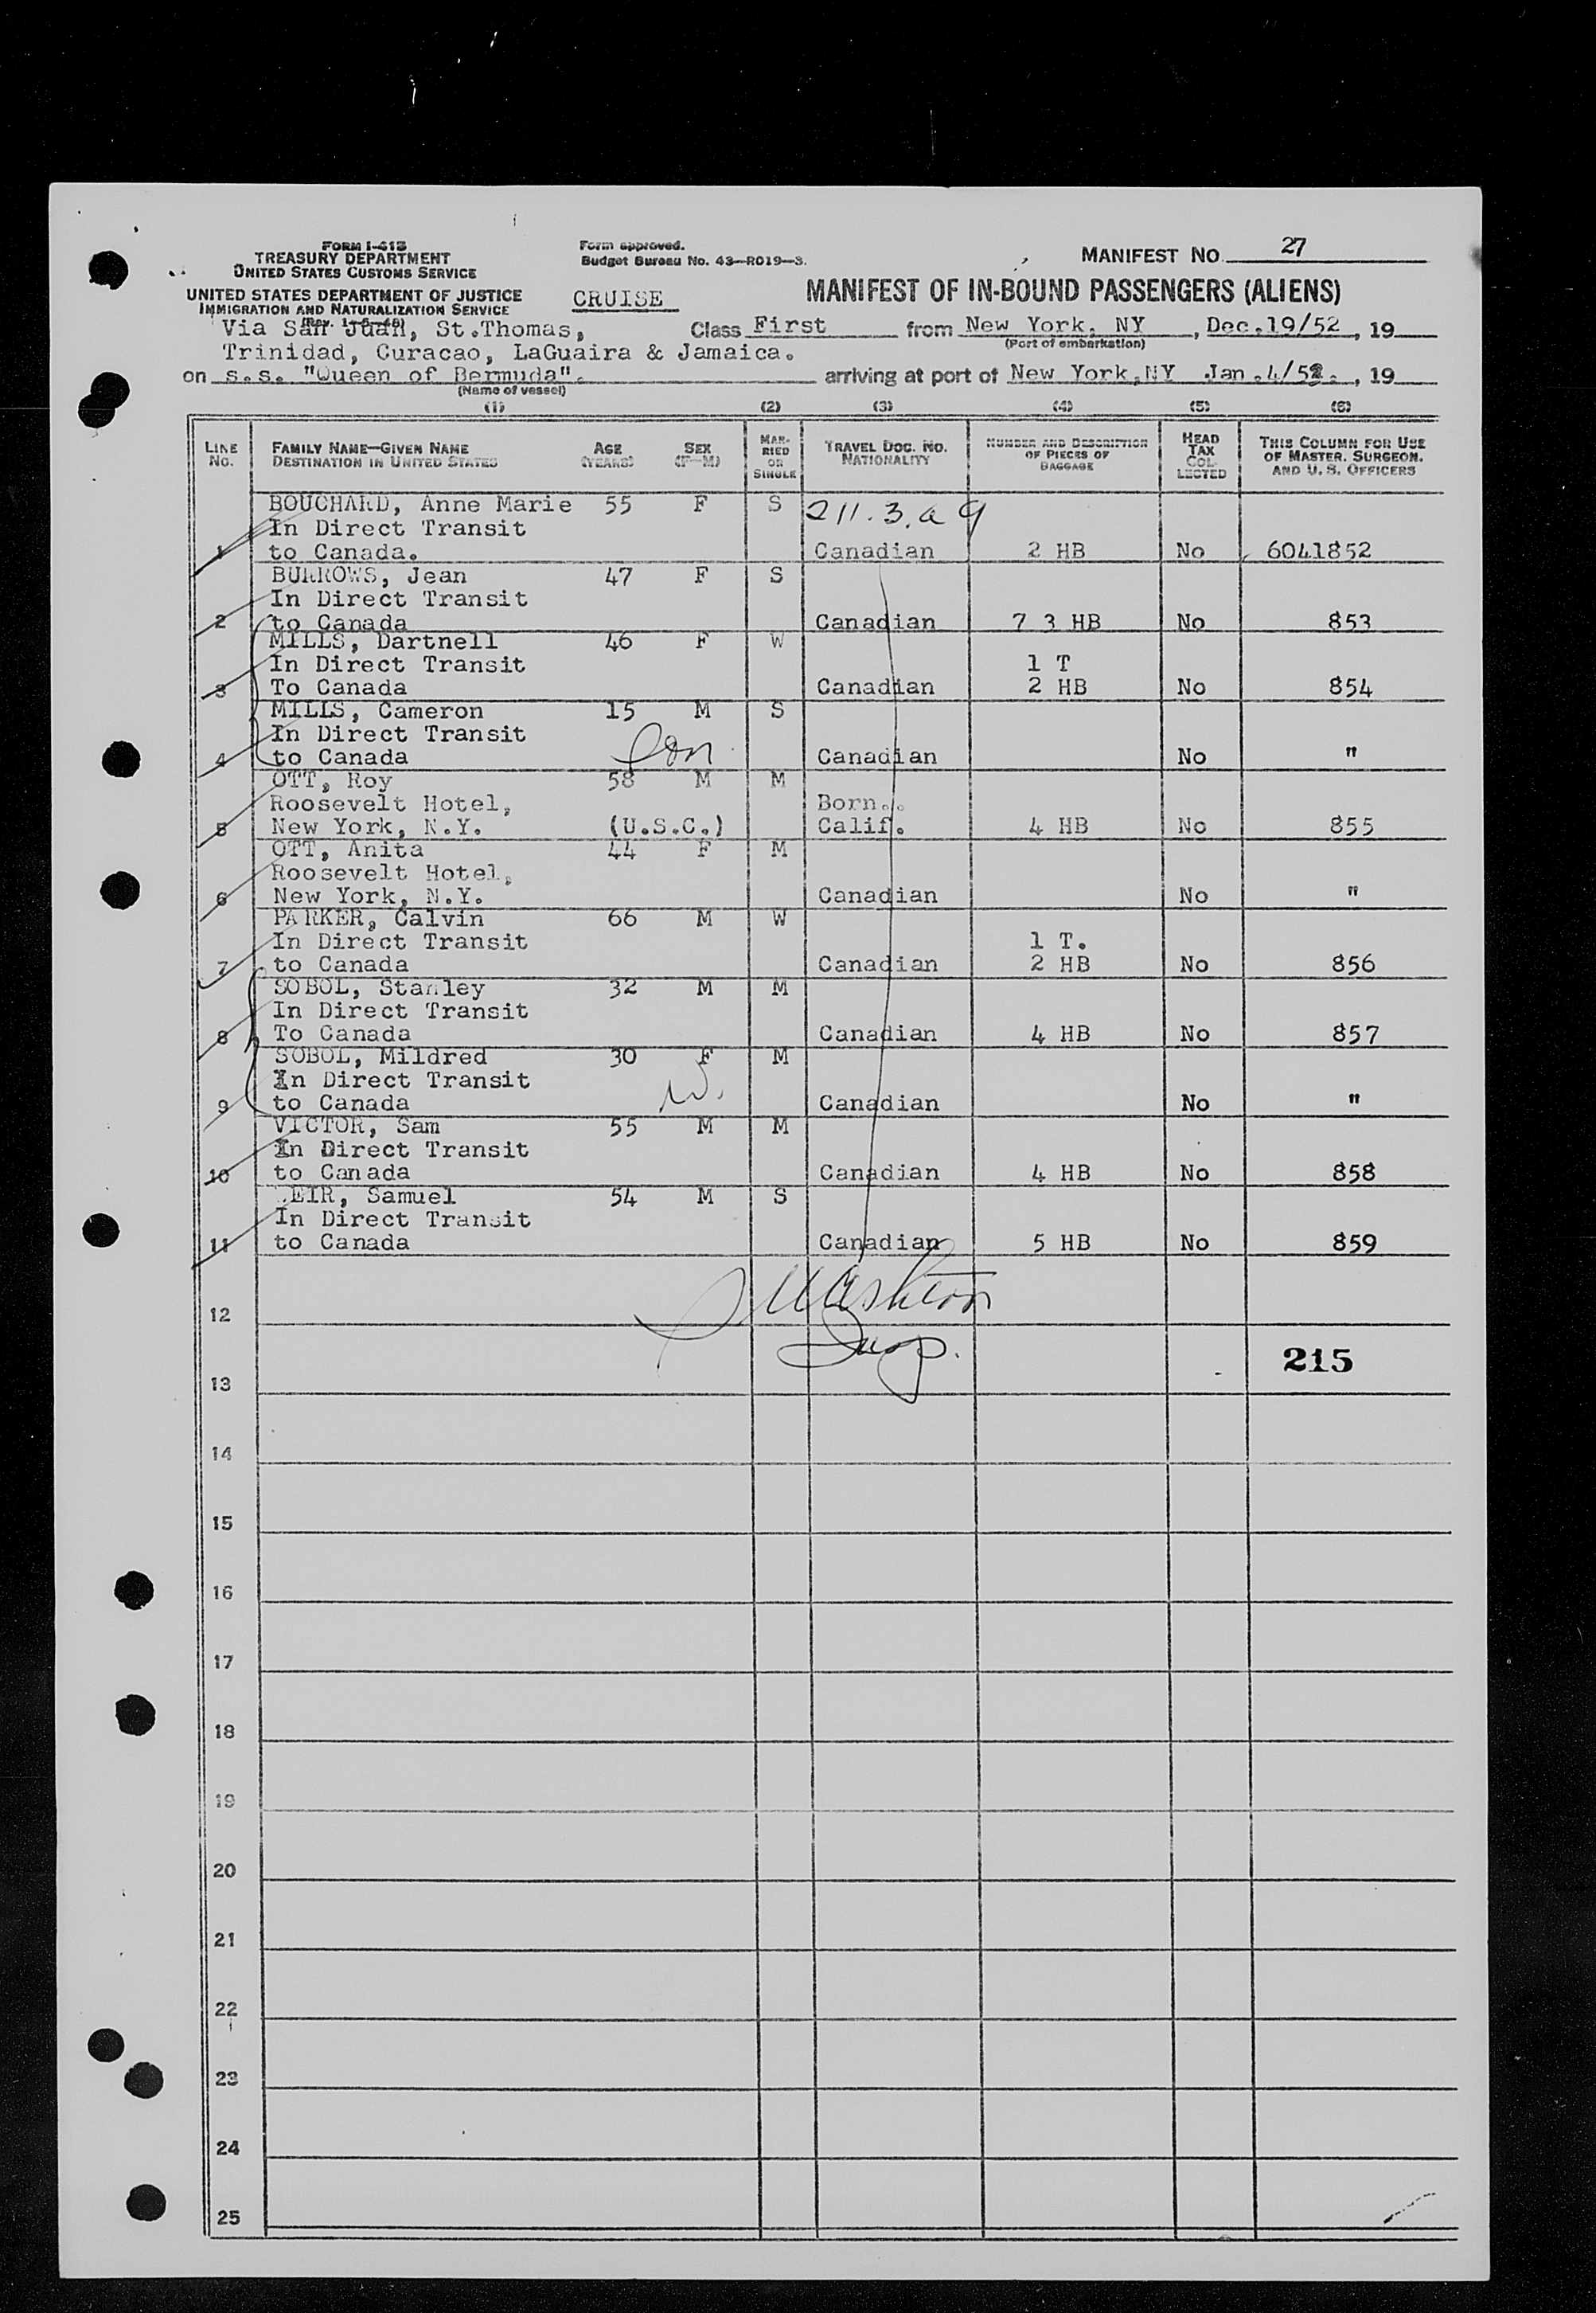 FORM I-418
TREASURY DEPARTMENT
UNITED STATES CUSTOMS SERVICE
UNITED STATES DEPARTMENT OF JUSTICE
IMMIGRATION AND NATURALIZATION SERVICE
Form approved.
Budget Bureau No. 43-R019-3.
MANIFEST NO. 27
CRUISE
MANIFEST OF IN-BOUND PASSENGERS (ALIENS)
Via San Juan, St.Thomas, Class First from New York, NY, Dec.19/52, 19
(Port of embarkation)
Trinidad, Curacao, LaGuaira & Jamaica.
on s.s. "Queen of Bermuda". arriving at port of New York,NY Jan.4/53., 19
(Name of vessel)
(1) (2) (3) (4) (5) (6)
LINE NO. FAMILY NAME—GIVEN NAME DESTINATION IN UNITED STATES AGE (YEARS) SEX (F—M) MARRIED OR SINGLE TRAVEL DOC. NO. NATIONALITY NUMBER AND DESCRIPTION OF PIECES OF BAGGAGE HEAD TAX COLLECTED THIS COLUMN FOR USE OF MASTER, SURGEON, AND U. S. OFFICERS
BOUCHARD, Anne Marie 55 F S 211.3.a 9
In Direct Transit
1 to Canada. Canadian 2 HB No 6041852
BURROWS, Jean 47 F S
In Direct Transit
2 to Canada Canadian 7 3 HB No 853
MILLS, Dartnell 46 F W
In Direct Transit 1 T
3 To Canada Canadian 2 HB No 854
MILLS, Cameron 15 M S
In Direct Transit
4 to Canada Son Canadian No "
OTT, Roy 58 M M
Roosevelt Hotel, Born..
5 New York, N.Y. (U.S.C.) Calif. 4 HB No 855
OTT, Anita 44 F M
Roosevelt Hotel,
6 New York, N.Y. Canadian No "
PARKER, Calvin 66 M W
In Direct Transit 1 T.
7 to Canada Canadian 2 HB No 856
SOBOL, Stanley 32 M M
In Direct Transit
8 To Canada Canadian 4 HB No 857
SOBOL, Mildred 30 F M
In Direct Transit W.
9 to Canada Canadian No "
VICTOR, Sam 55 M M
In Direct Transit
10 to Canada Canadian 4 HB No 858
EIR, Samuel 54 M S
In Direct Transit
11 to Canada Canadian 5 HB No 859
12
Insp.
215
13
14
15
16
17
18
19
20
21
22
23
24
25